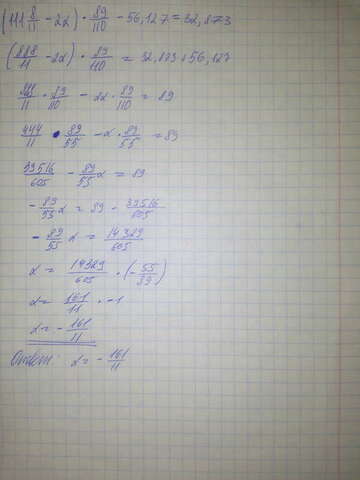 (111 8/11 - 2x) · 89/110 - 56,127 = 32,873
(888/11 - 2x) · 89/110 = 32,873 + 56,127
888/11 · 89/110 - 2x · 89/110 = 89
444/11 · 89/55 - x · 89/55 = 89
39516/605 - 89/55 x = 89
- 89/55 x = 89 - 39516/605
- 89/55 x = 14329/605
x = 14329/605 · (- 55/89)
x = 161/11 · -1
x = - 161/11
Ответ: x = - 161/11